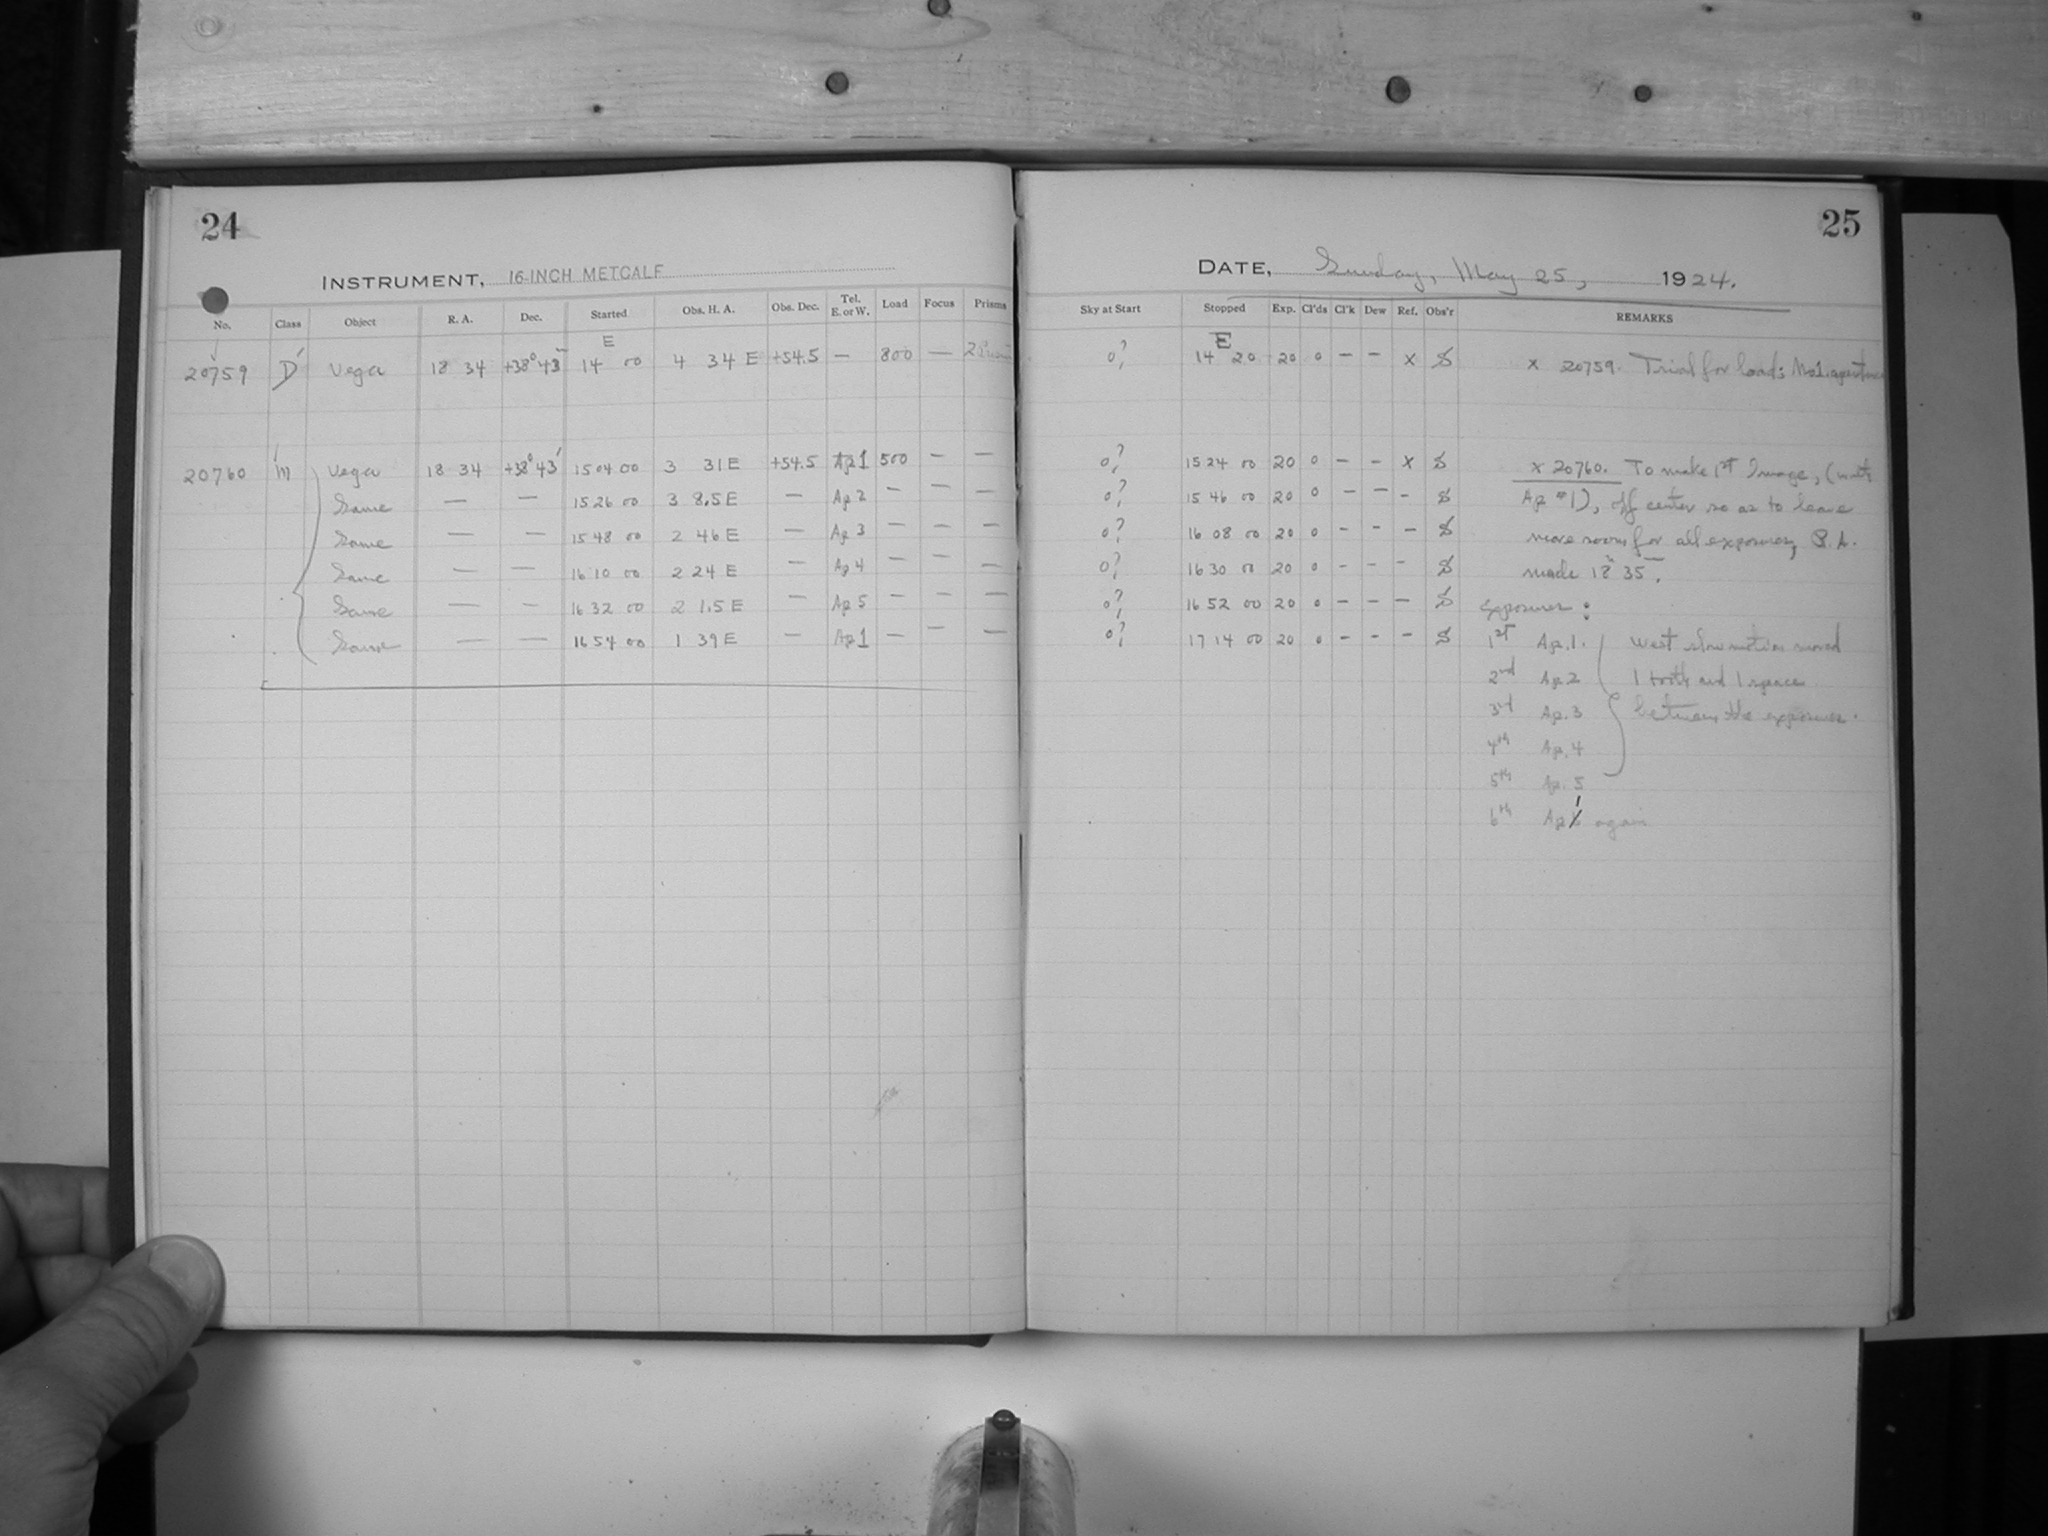 24
INSTRUMENT, 16-INCH METCALF
No. Class Object R. A. Dec. Started Obs. H. A. Obs. Dec. Tel. E. or W. Load Focus Prisms
E
20759 D' Vega 18 34 +38° 43' 14 00 4 34 E +54.5 — 800 —
20760 m Vega 18 34 +38° 43' 15 04 00 3 31 E +54.5 Ap 1 500 — —
Same — — 15 26 00 3 8.5 E — Ap 2 — — —
Same — — 15 48 00 2 46 E — Ap 3 — — —
Same — — 16 10 00 2 24 E — Ap 4 — — —
Same — — 16 32 00 2 1.5 E — Ap 5 — — —
Same — — 16 54 00 1 39 E — Ap 1 — — —
25
DATE, Sunday, May 25, 1924.
Sky at Start Stopped Exp. Cl'ds Cl'k Dew Ref. Obs'r REMARKS
E
0? 14 20 20 0 — — x S x 20759. Trial for load: No 1. aperture
0? 15 24 00 20 0 — — x S x 20760. To make 1st Image, (with
0? 15 46 00 20 0 — — - S Ap #1), off center so as to leave
0? 16 08 00 20 0 - - - S more room for all exposures, R. A.
0? 16 30 00 20 0 - - - S made 18 35.
0? 16 52 00 20 0 - - - S Exposures:
0? 17 14 00 20 0 - - - S 1st Ap. 1. West slow motion moved
2nd Ap 2 1 tooth and 1 space
3rd Ap. 3 between the exposures.
4th Ap. 4
5th Ap. 5
6th Ap 1 again